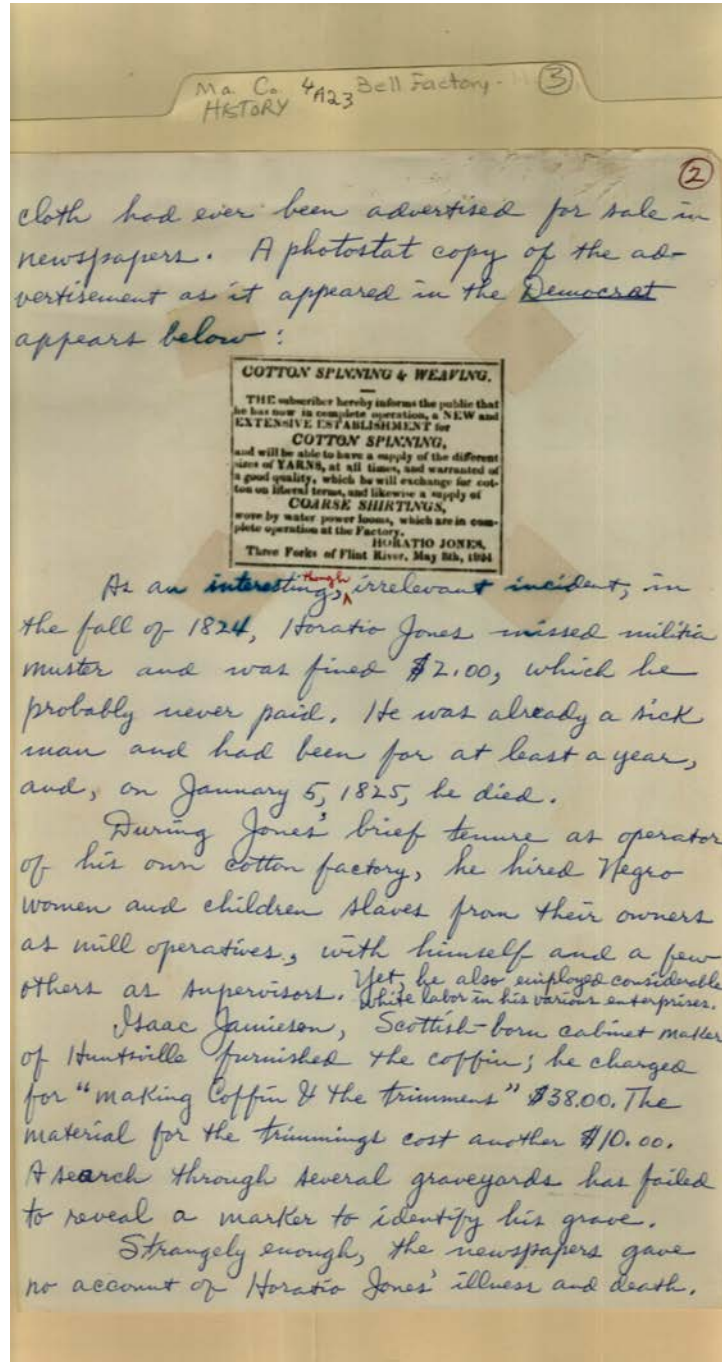 Ma. Co. 4A23 Bell Factory - 3
HISTORY
2
cloth had ever been advertised for sale in
newspapers. A photostat copy of the ad-
vertisement as it appeared in the Democrat
appears below:
COTTON SPINNING & WEAVING.
THE subscriber hereby informs the public that
he has now in complete operation, a NEW and
EXTENSIVE ESTABLISHMENT for
COTTON SPINNING,
and will be able to have a supply of the different
sizes of YARNS, at all times, and warranted of
a good quality, which he will exchange for cot-
ton on liberal terms, and likewise a supply of
COARSE SHIRTINGS,
wove by water power looms, which are in com-
plete operation at the Factory.
HORATIO JONES.
Three Forks of Flint River, May 8th, 1824
As an interesting, though irrelevant incident, in
the fall of 1824, Horatio Jones missed militia
muster and was fined $2.00, which he
probably never paid. He was already a sick
man and had been for at least a year,
and, on January 5, 1825, he died.
During Jones' brief tenure as operator
of his own cotton factory, he hired Negro
women and children slaves from their owners
as mill operatives, with himself and a few
others as supervisors. Yet, he also employed considerable
white labor in his various enterprises.
Isaac Jamieson, Scottish-born cabinet maker
of Huntsville furnished the coffin; he charged
for "making Coffin & the trimmens" $38.00. The
material for the trimmings cost another $10.00.
A search through several graveyards has failed
to reveal a marker to identify his grave.
Strangely enough, the newspapers gave
no account of Horatio Jones' illness and death.